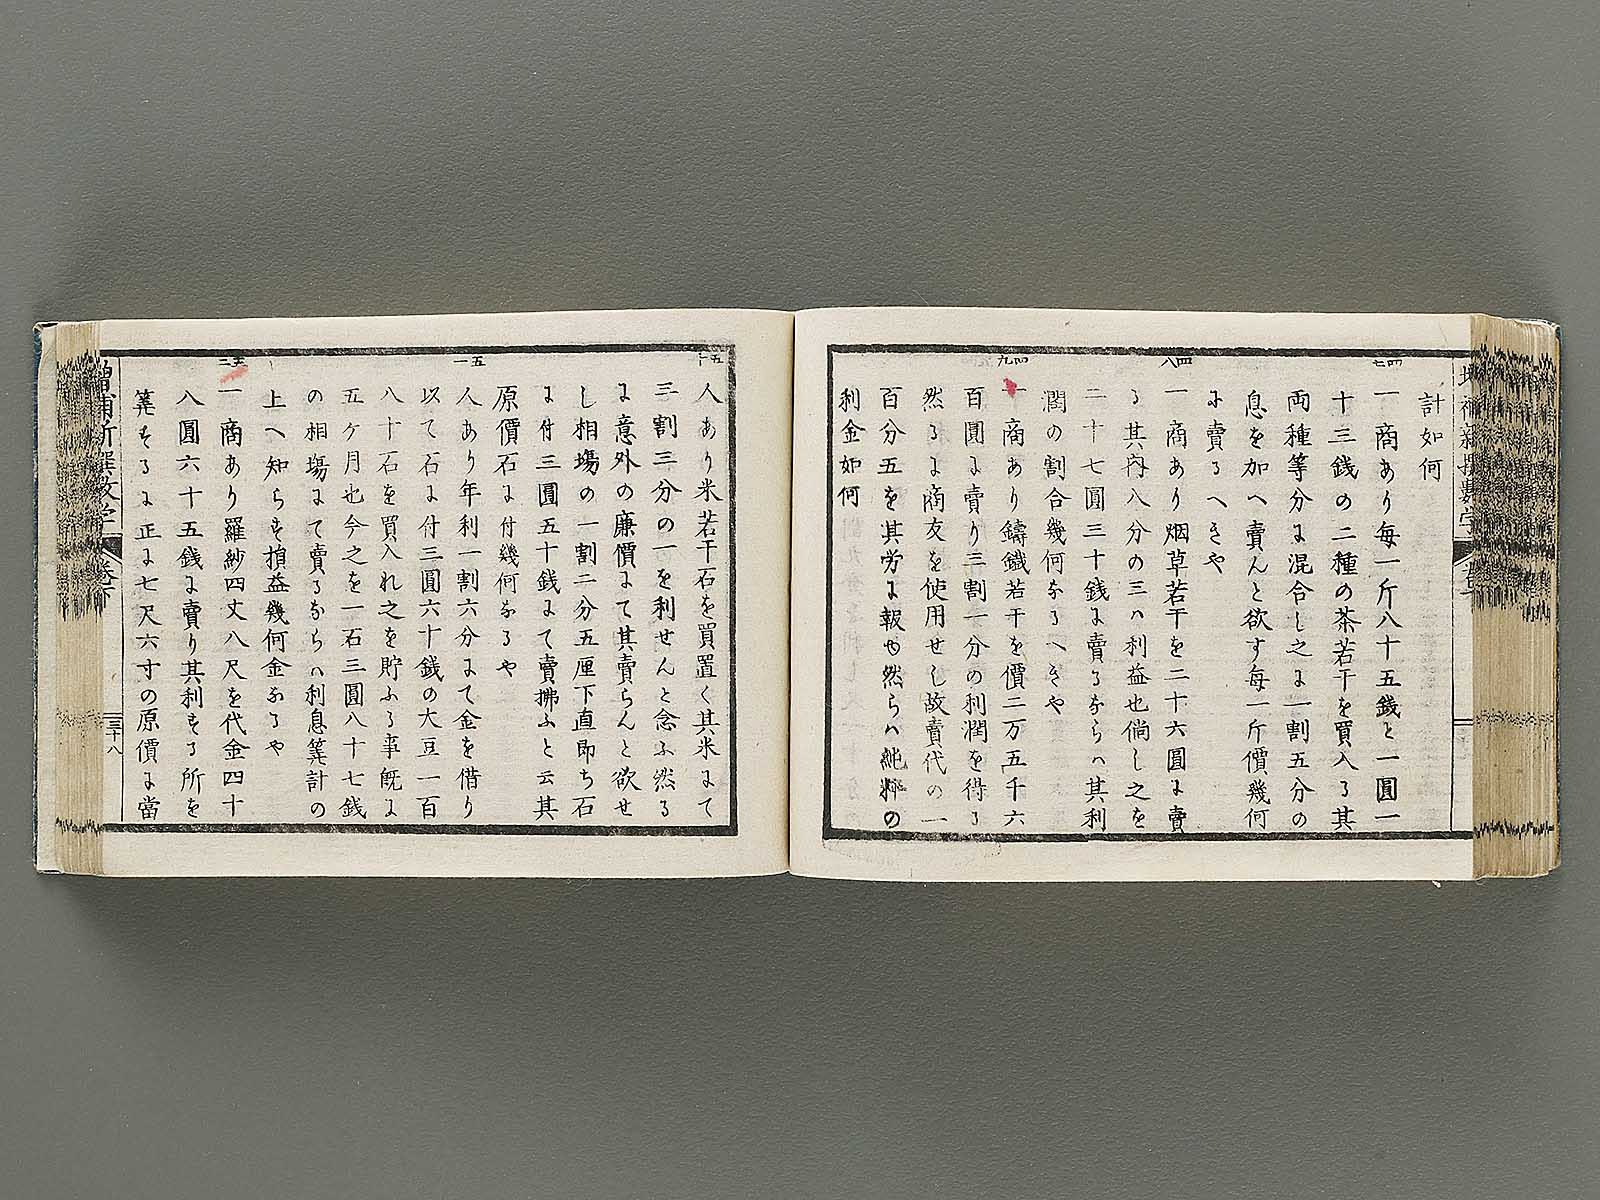 計如何
四七
一 商あり毎一斤八十五錢と一圓一
十三錢の二種の茶若干を買入る其
両種等分に混合し之に一割五分の
息を加へ賣んと欲す毎一斤價幾何
に賣るへきや
四八
一 商あり烟草若干を二十六圓に賣
る其内八分の三ハ利益也倘し之を
二十七圓三十錢に賣るならハ其利
潤の割合幾何なるへきや
四九
一 商あり鑄鐵若干を價二万五千六
百圓に賣り三割一分の利潤を得る
然るに商友を使用せし故賣代の一
百分五を其労に報也然らハ純粋の
利金如何
五十
人あり米若干石を買置く其米にて
三割三分の一を利せんと念ふ然る
に意外の廉價にて其賣らんと欲せ
し相塲の一割二分五厘下直即ち石
に付三圓五十錢にて賣拂ふと云其
原價石に付幾何なるや
五一
人あり年利一割六分にて金を借り
以て石に付三圓六十錢の大豆一百
八十石を買入れ之を貯ふる事既に
五ケ月也今之を一石三圓八十七錢
の相塲にて賣るならハ利息筭計の
上へ知らす損益幾何金なるや
五二
一 商あり羅紗四丈八尺を代金四十
八圓六十五錢に賣り其利する所を
筭するに正に七尺六寸の原價に當
增補新撰數学 卷下
三十八